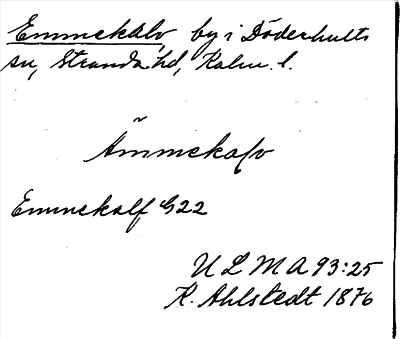 Emmekalv, by i Döderhults
sn, Stranda hd, Kalm. l.
Ämmekalv
Emmekalf G22
ULMA 93:25
K. Ahlstedt 1876